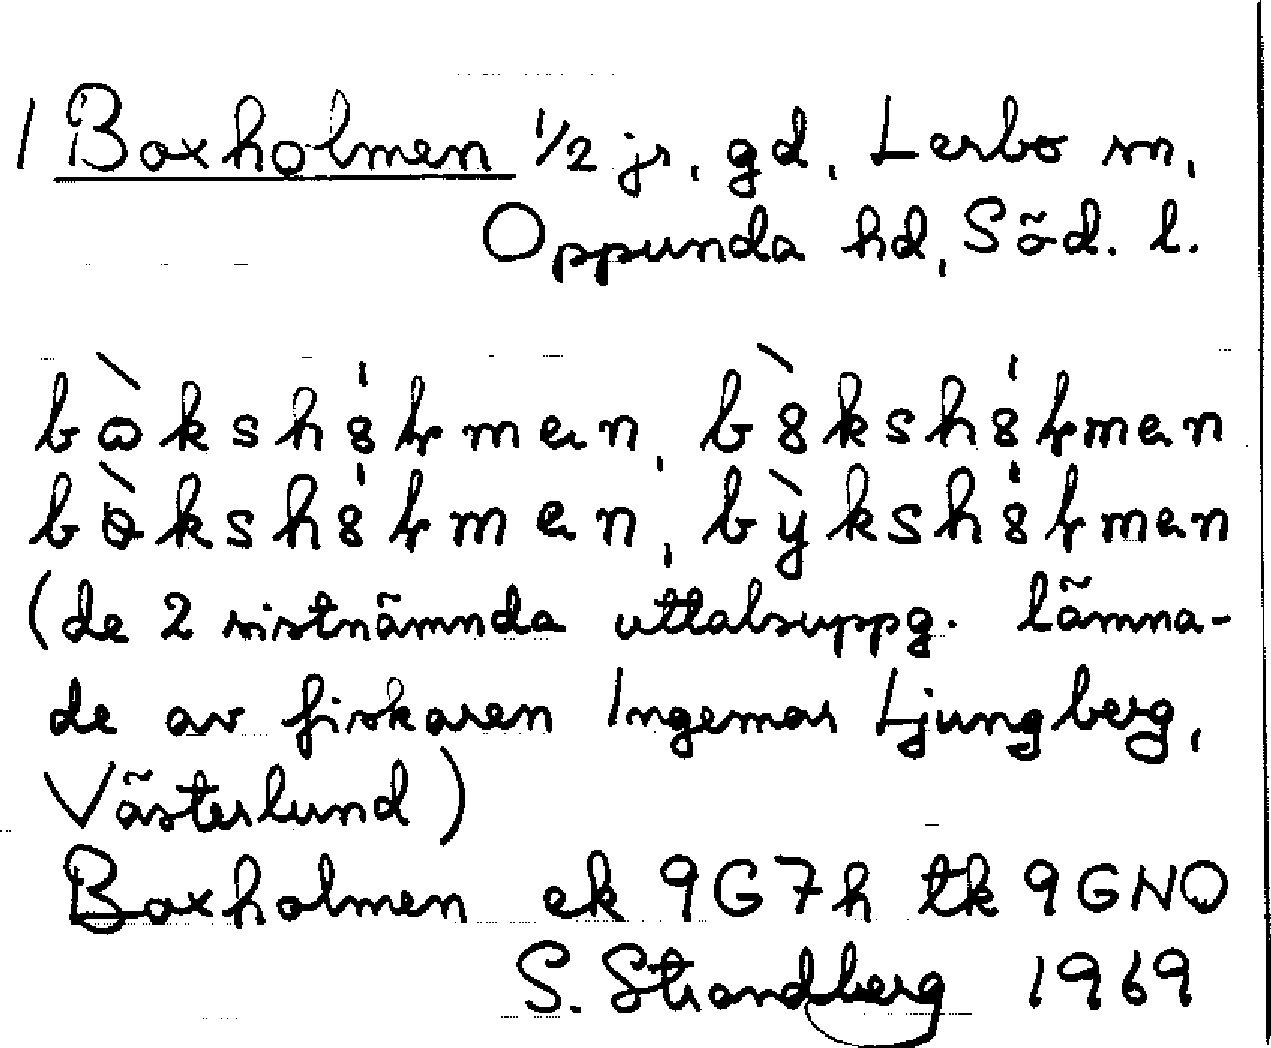 1 Boxholmen 1/2 jr, gd, Lerbo sn,
Oppunda hd, Söd. l.
bɷ̀kshȣ́ɫmen, bȣ̀kshȣ́ɫmen
bòkshȣ́ɫmen, bỳkshȣ́ɫmen
(de 2 sistnämnda uttalsuppg. lämna-
de av fiskaren Ingemar Ljungberg,
Västerlund)
Boxholmen ek 9G7h tk 9GNO
S. Strandberg 1969